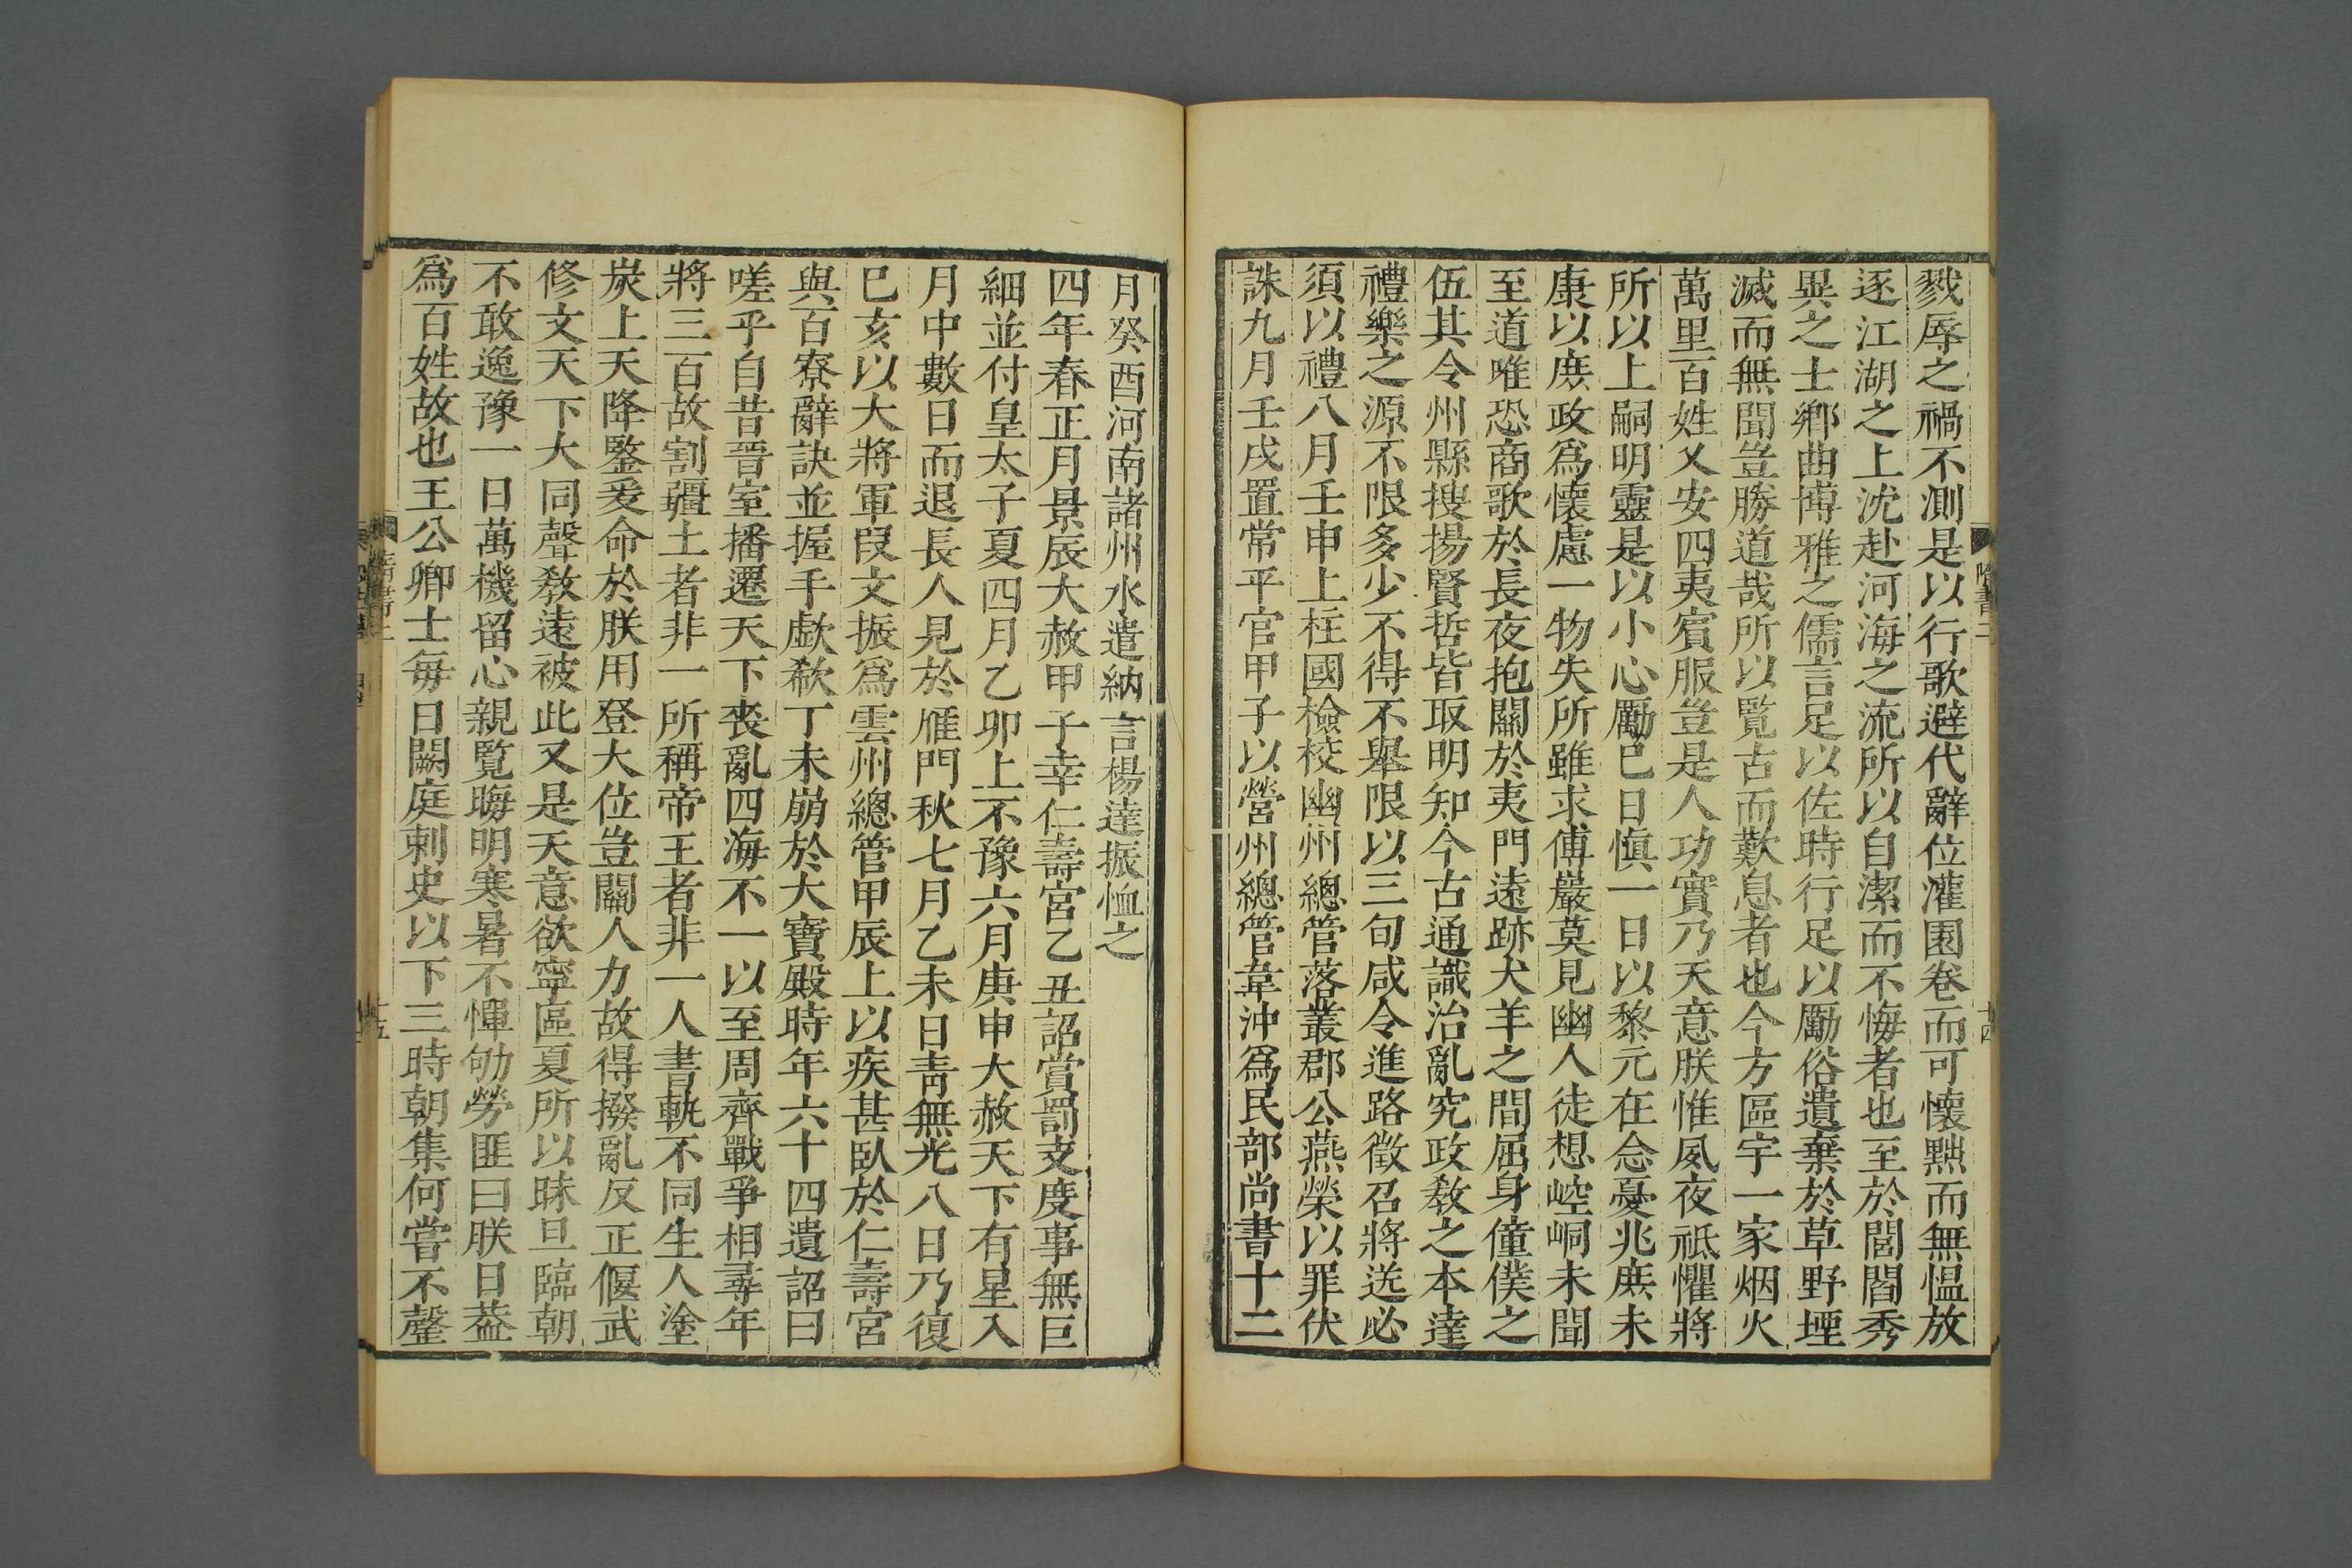 戮辱之禍不測是以行歌避代辭位灌園卷而可懷黜而無慍放
逐江湖之上沈赴河海之流所以自潔而不悔者也至於閭閻秀
異之士鄉曲博雅之儒言足以佐時行足以勵俗遺棄於草野堙
滅而無聞豈勝道哉所以覽古而歎息者也今方區宇一家烟火
萬里百姓乂安四夷賓服豈是人功實乃天意朕惟夙夜祗懼將
所以上嗣明靈是以小心勵己日慎一日以黎元在念憂兆庶未
康以庶政爲懷慮一物失所雖求傅巖莫見幽人徒想崆峒未聞
至道唯恐商歌於長夜抱關於夷門遠跡犬羊之間屈身僮僕之
伍其令州縣搜揚賢哲皆取明知今古通識治亂究政教之本達
禮樂之源不限多少不得不舉限以三旬咸令進路徵召將送必
須以禮八月壬申上柱國檢校幽州總管落叢郡公燕榮以罪伏
誅九月壬戌置常平官甲子以營州總管韋沖爲民部尚書十二
月癸酉河南諸州水遣納言楊達振恤之
四年春正月景辰大赦甲子幸仁壽宮乙丑詔賞罰支度事無巨
細並付皇太子夏四月乙卯上不豫六月庚申大赦天下有星入
月中數日而退長人見於雁門秋七月乙未日青無光八日乃復
己亥以大將軍段文振爲雲州總管甲辰上以疾甚臥於仁壽宮
與百寮辭訣並握手歔欷丁未崩於大寶殿時年六十四遺詔曰
嗟乎自昔晉室播遷天下喪亂四海不一以至周齊戰爭相尋年
將三百故割疆土者非一所稱帝王者非一人書軌不同生人塗
炭上天降鑒爰命於朕用登大位豈關人力故得撥亂反正偃武
修文天下大同聲教遠被此又是天意欲寧區夏所以昧旦臨朝
不敢逸豫一日萬機留心親覽晦明寒暑不憚劬勞匪曰朕日葢
爲百姓故也王公卿士每日闕庭刺史以下三時朝集何嘗不罄
隋書二
十四
隋書二
十五